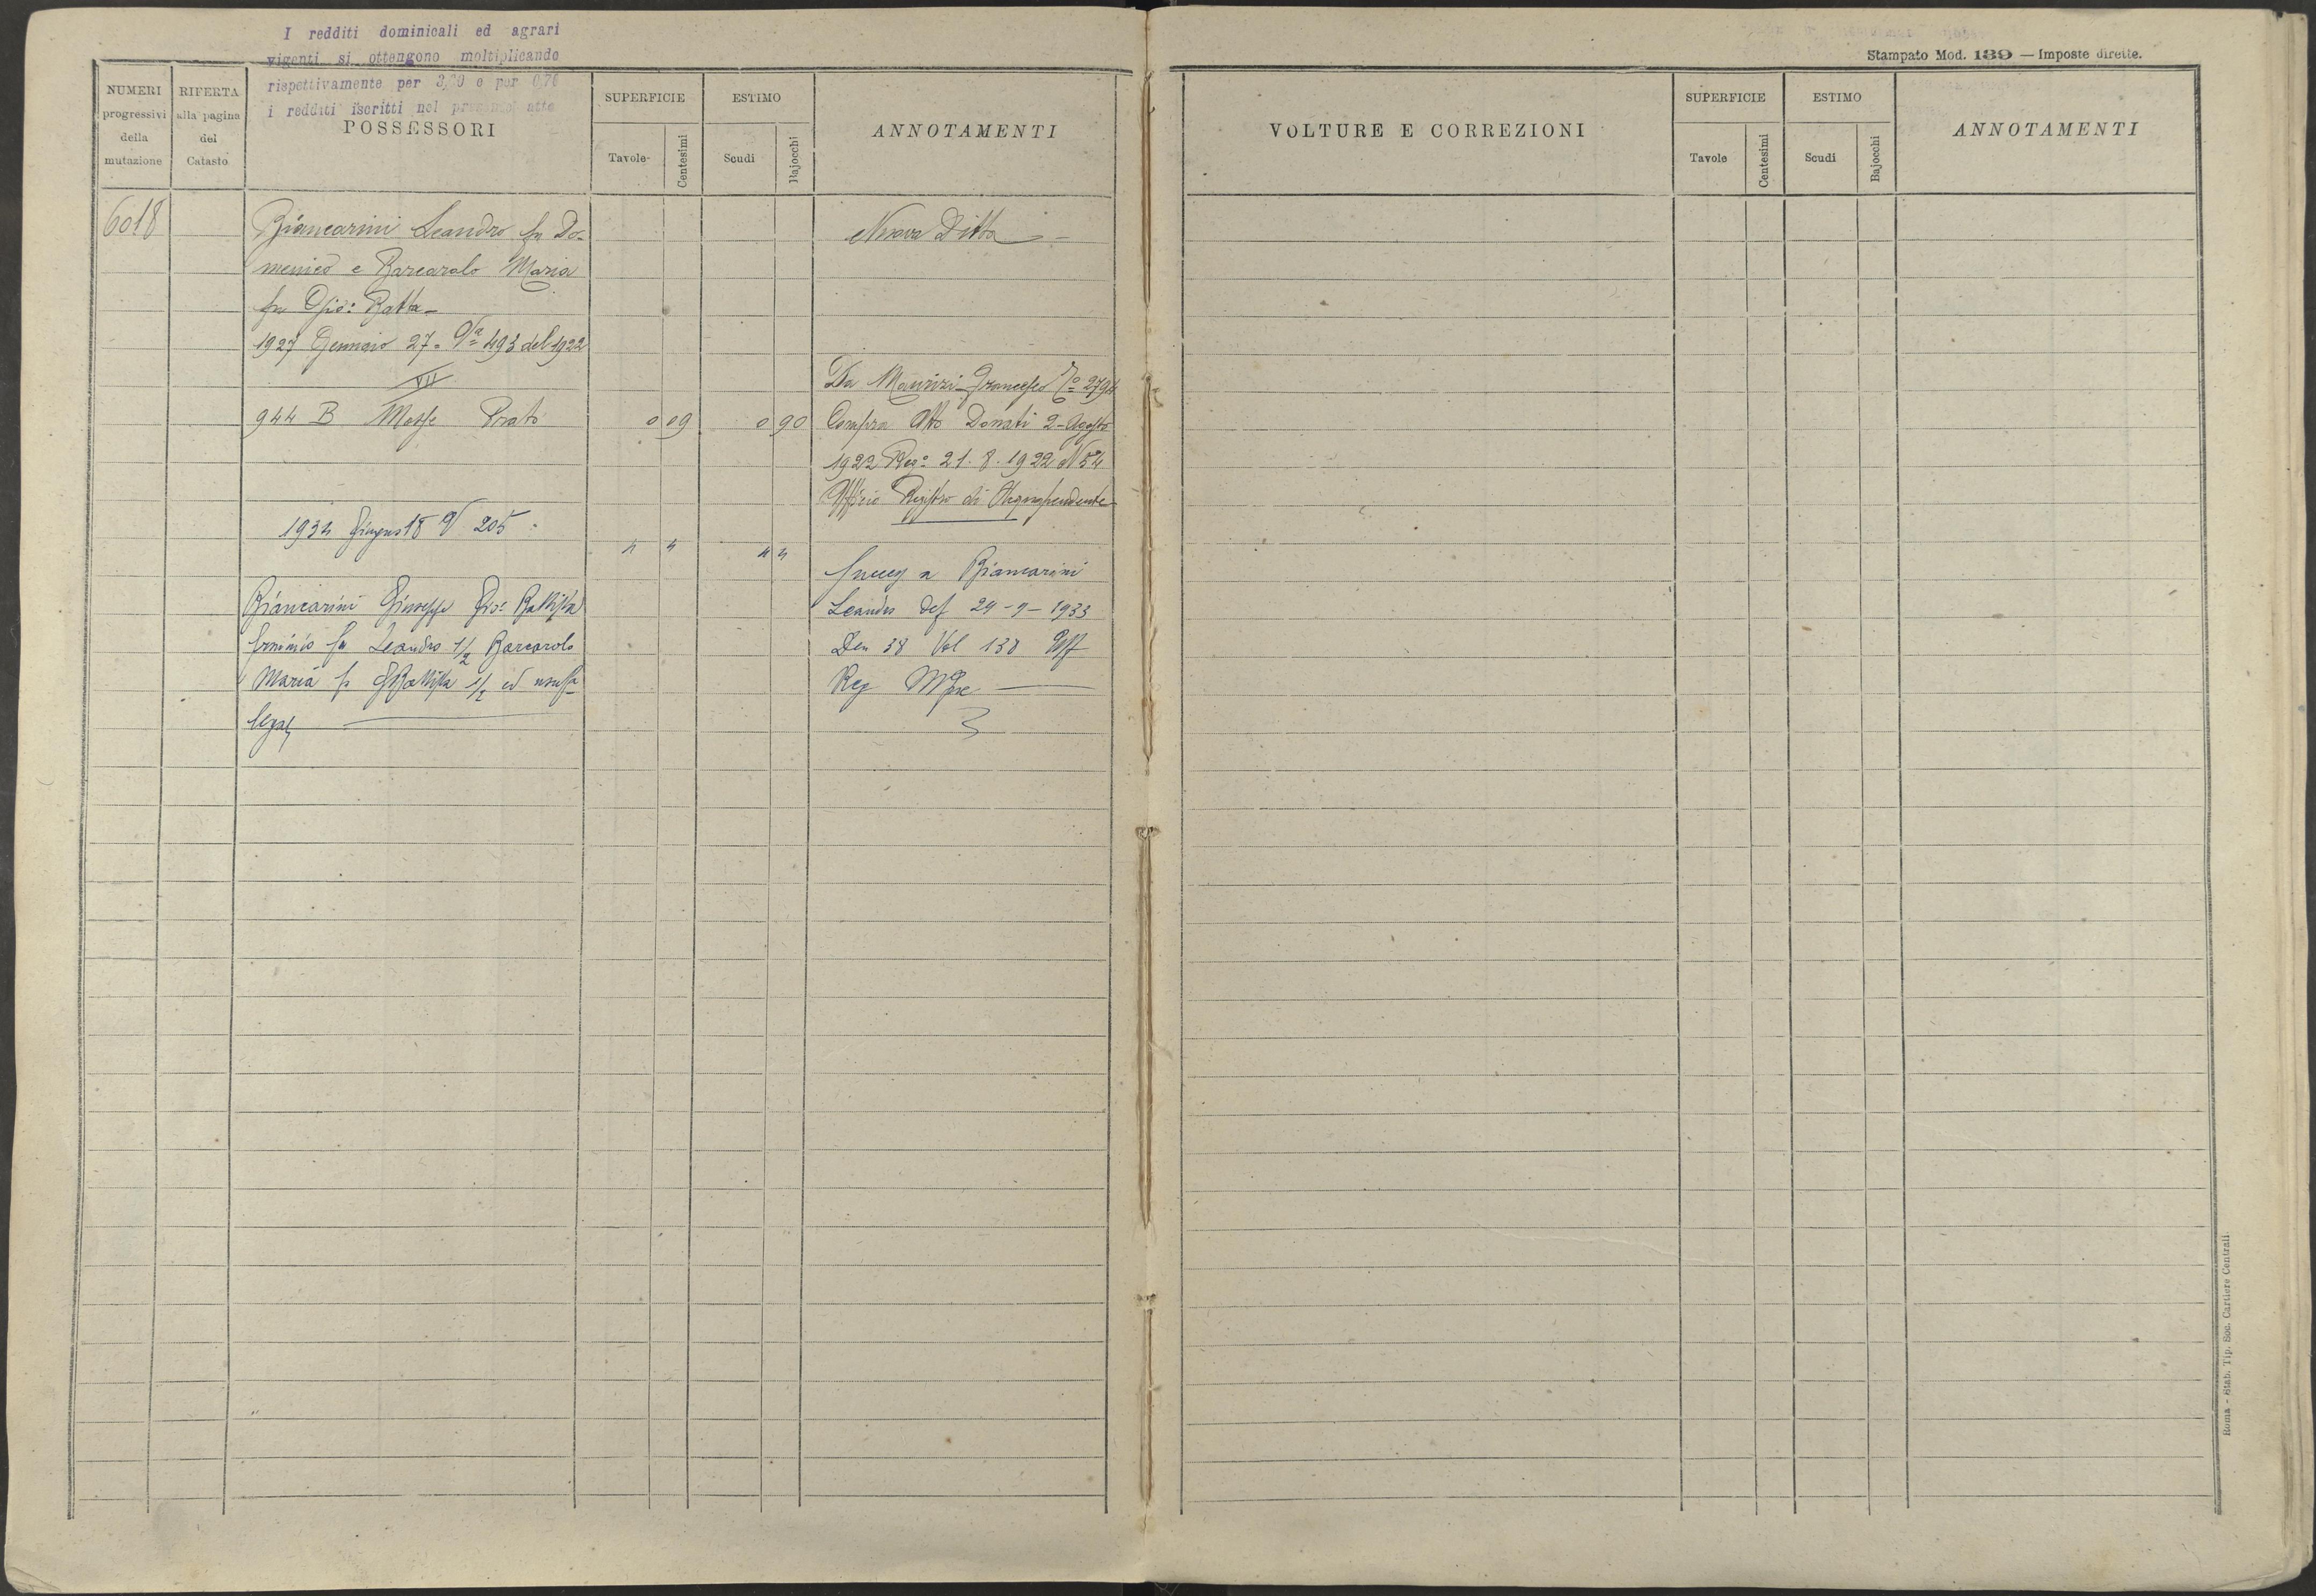 I redditi dominicali ed agrari
vigenti si ottengono moltiplicando
rispettivamente per 3,60 e per 0,70
i redditi iscritti nel presente atto
NUMERI
progressivi
della
mutazione
RIFERTA
alla pagina
del
Catasto
POSSESSORI
SUPERFICIE
Tavole
Centesimi
ESTIMO
Scudi
Bajocchi
ANNOTAMENTI
6018
Biancarini Leandro fu Do-
menico e Barcarolo Maria
fu Gio: Batta-
1927 Gennaio 27 - Va 493 del 1922
VII
944 B Mosse Prato
0 09
0 90
Nuova Ditta
Da Maurizi Francesco 2794
Compra Atto Donati 2 - Agosto
1922 Rego 21. 8. 1922 N 54
Ufficio Registro di Acquapendente
1934 Giugno 18 V 205
Biancarini Giuseppe Gio: Battista
Erminio fu Leandro 1/2 Barcarolo
Maria f. GBattista 1/2 ed usuf
legal
Success a Biancarini
Leandro def 29-9-1933
Den 38 Vol 138 Uff
Reg
Stampato Mod. 139 — Imposte dirette.
VOLTURE E CORREZIONI
SUPERFICIE
Tavole
Centesimi
ESTIMO
Scudi
Bajocchi
ANNOTAMENTI
Roma - Stab. Tip. Soc. Cartiere Centrali.